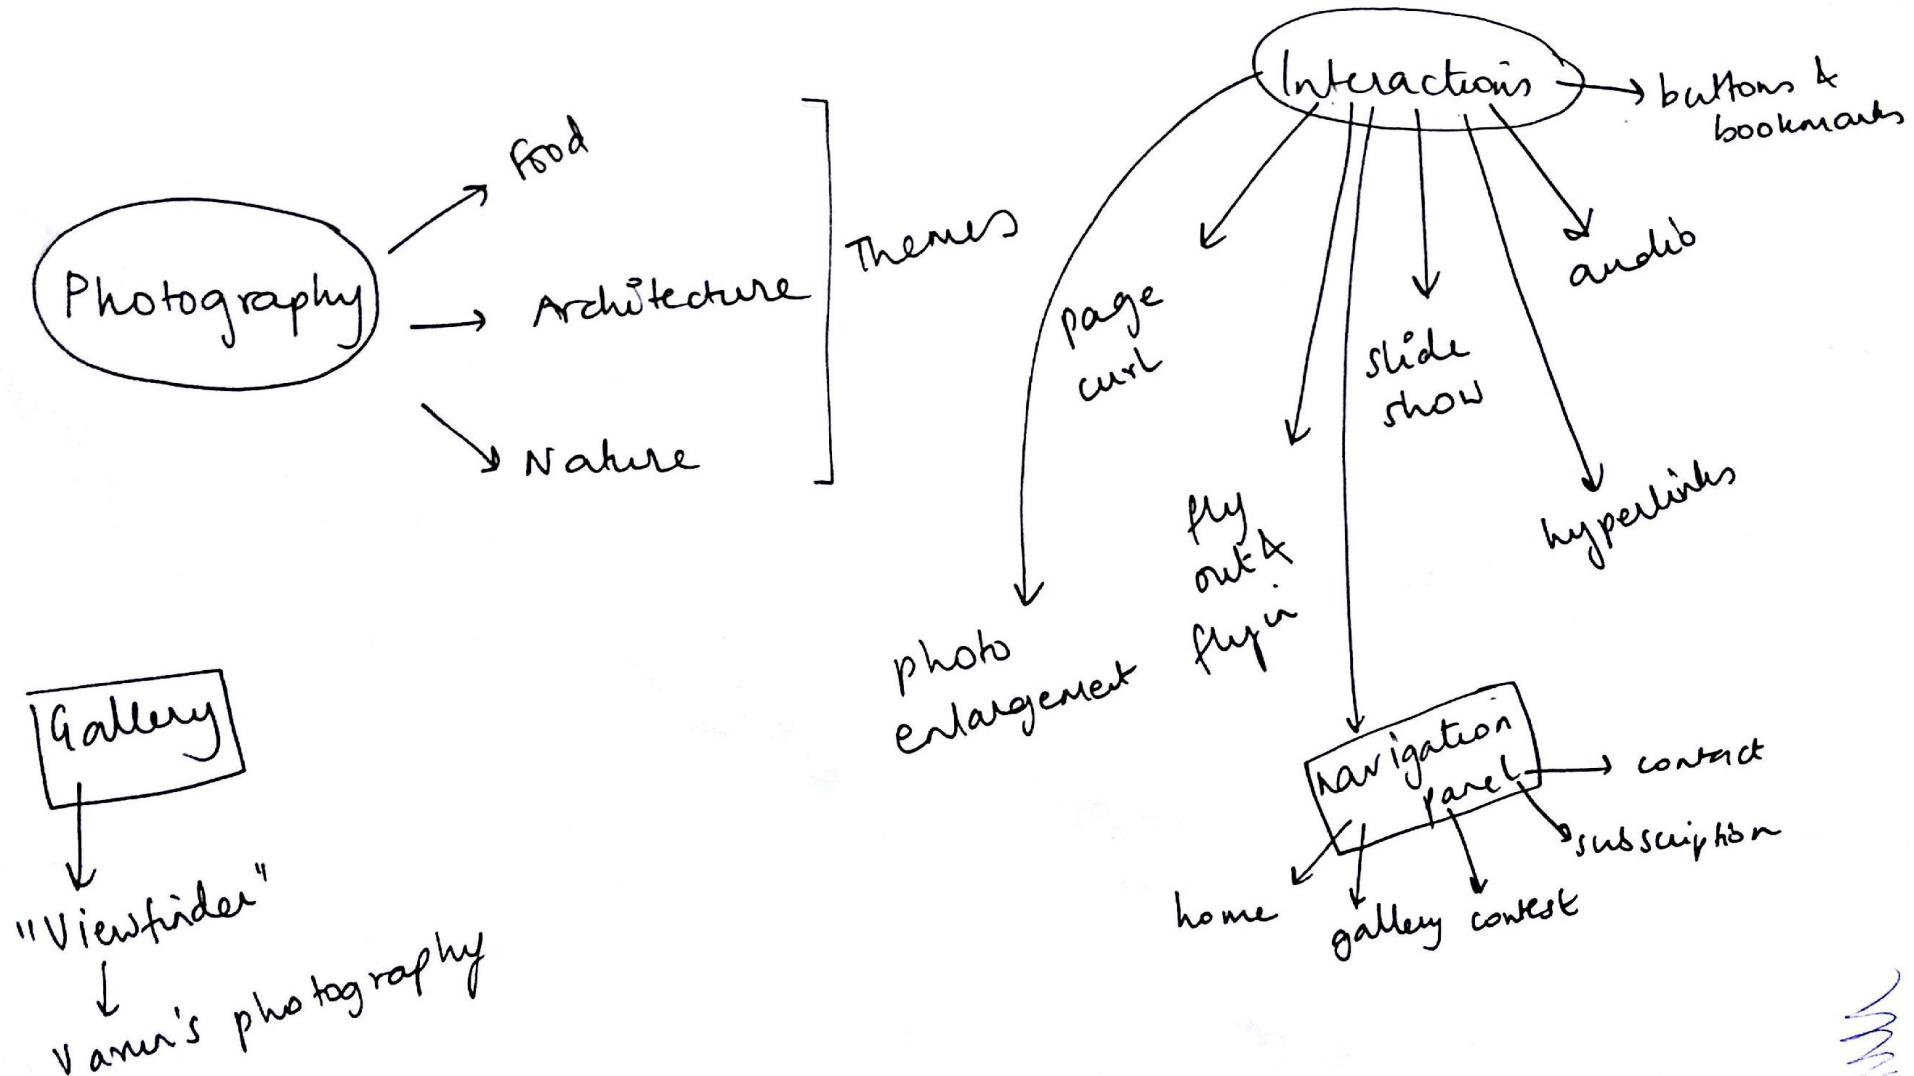 Photography
Food
Architecture
Nature
Themes
Gallery
"Viewfinder"
photography
Interactions
buttons &
bookmarks
audio
hyperlinks
slide
show
page
curl
fly
out &
fly in
photo
enlargement
navigation
panel
contact
subscription
contest
gallery
home